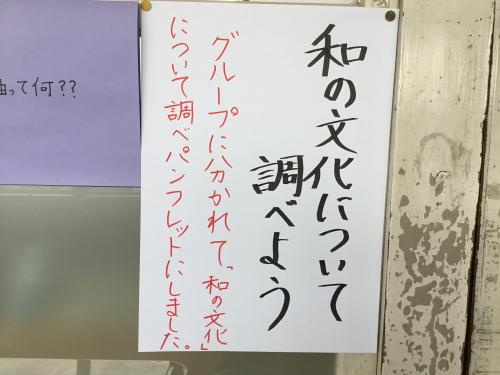 和の文化について
調べよう
グループに分かれて、「和の文化」
について調べパンフレットにしました。
って何??